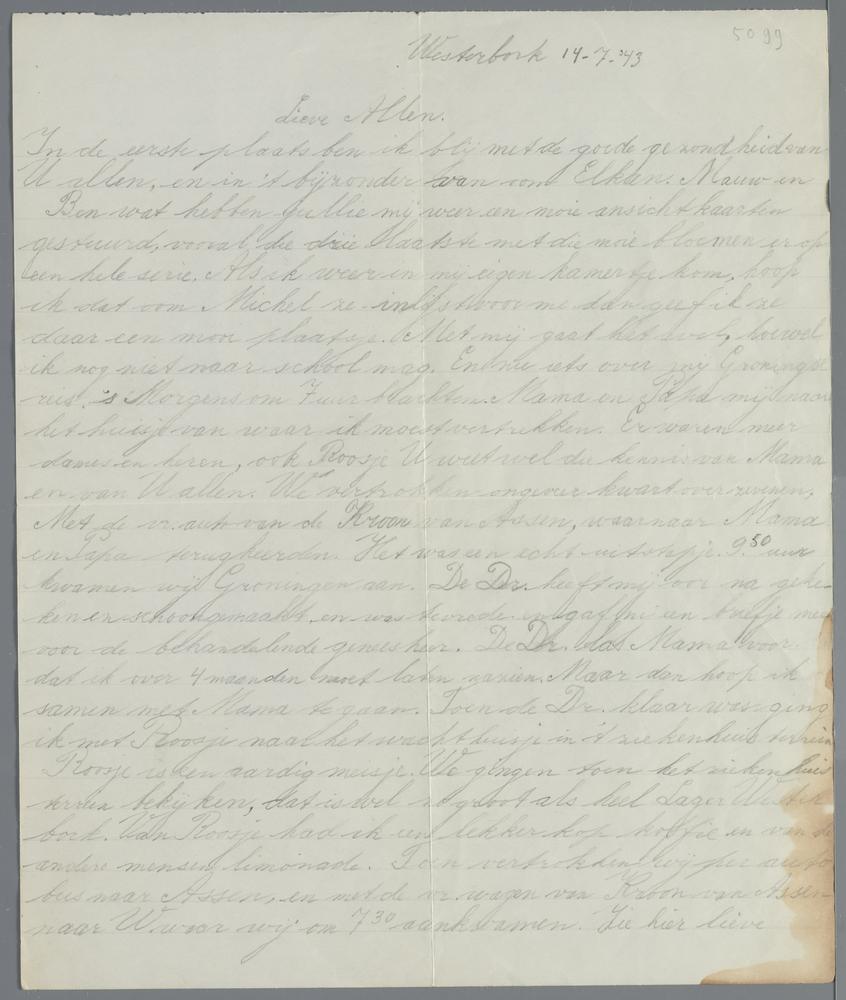 5099
Westerbork 14-7-'43
Lieve Allen.
In de eerste plaats ben ik blij met de goede gezondheid van
U allen, en in 't bijzonder van oom Elkan. Mauw en
Ben wat hebben jullie mij weer een mooie ansichtkaarten
gestuurd, vooral die drie laatste met die mooie bloemen er op
een hele serie. Als ik weer in mij eigen kamertje kom, hoop
ik dat oom Michel ze inlijst voor me dan geef ik ze
daar een mooi plaatsje. Met mij gaat het wel, hoewel
ik nog niet naar school mag. En nu iets over mij Groningse
reis. 's Morgens om 7 uur brachten Mama en Papa mij naar
het huisje van waar ik moest vertrekken. Er waren meer
dames en heren, ook Roosje U weet wel die kennis van Mama
en van U allen. We vertrokken ongeveer kwart over zevenen.
Met de vr. auto van de Kroon van Assen, waarnaar Mama
en Papa terugkeerden. Het was een echt uitstapje. 9.50 uur
kwamen wij Groningen aan. De Dr. heeft mij oor na geke-
ken en schoongemaakt en was tevrede en gaf mij een briefje mee
voor de behandelende geneesheer. De Dr. las Mama voor
dat ik over 4 maanden moet laten nazien. Maar dan hoop ik
samen met Mama te gaan. Toen de Dr. klaar was ging
ik met Roosje naar het wachthuisje in 't ziekenhuis terrein
Roosje is een aardig meisje. We gingen toen het ziekenhuis
terrein bekijken, dat is wel zo groot als heel Lager Wester
bork. Van Roosje had ik een lekker kop koffie en van de
andere mensen limonade. Toen vertrokken wij per auto
bus naar Assen, en met de vr. wagen van Kroon van Assen
naar W. waar wij om 7.30 aankwamen. Zie hier lieve